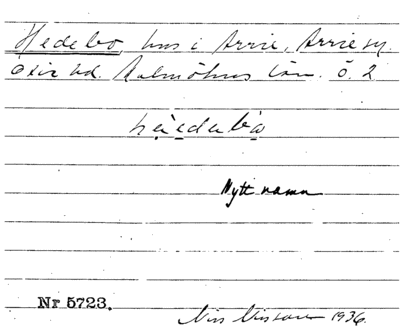 Hedebo, hus i Arrie, Arrie sn.
Oxie hd. Malmöhus län. ö. 2
hæ̀dabo
Nytt namn
Nr 5723.
1936